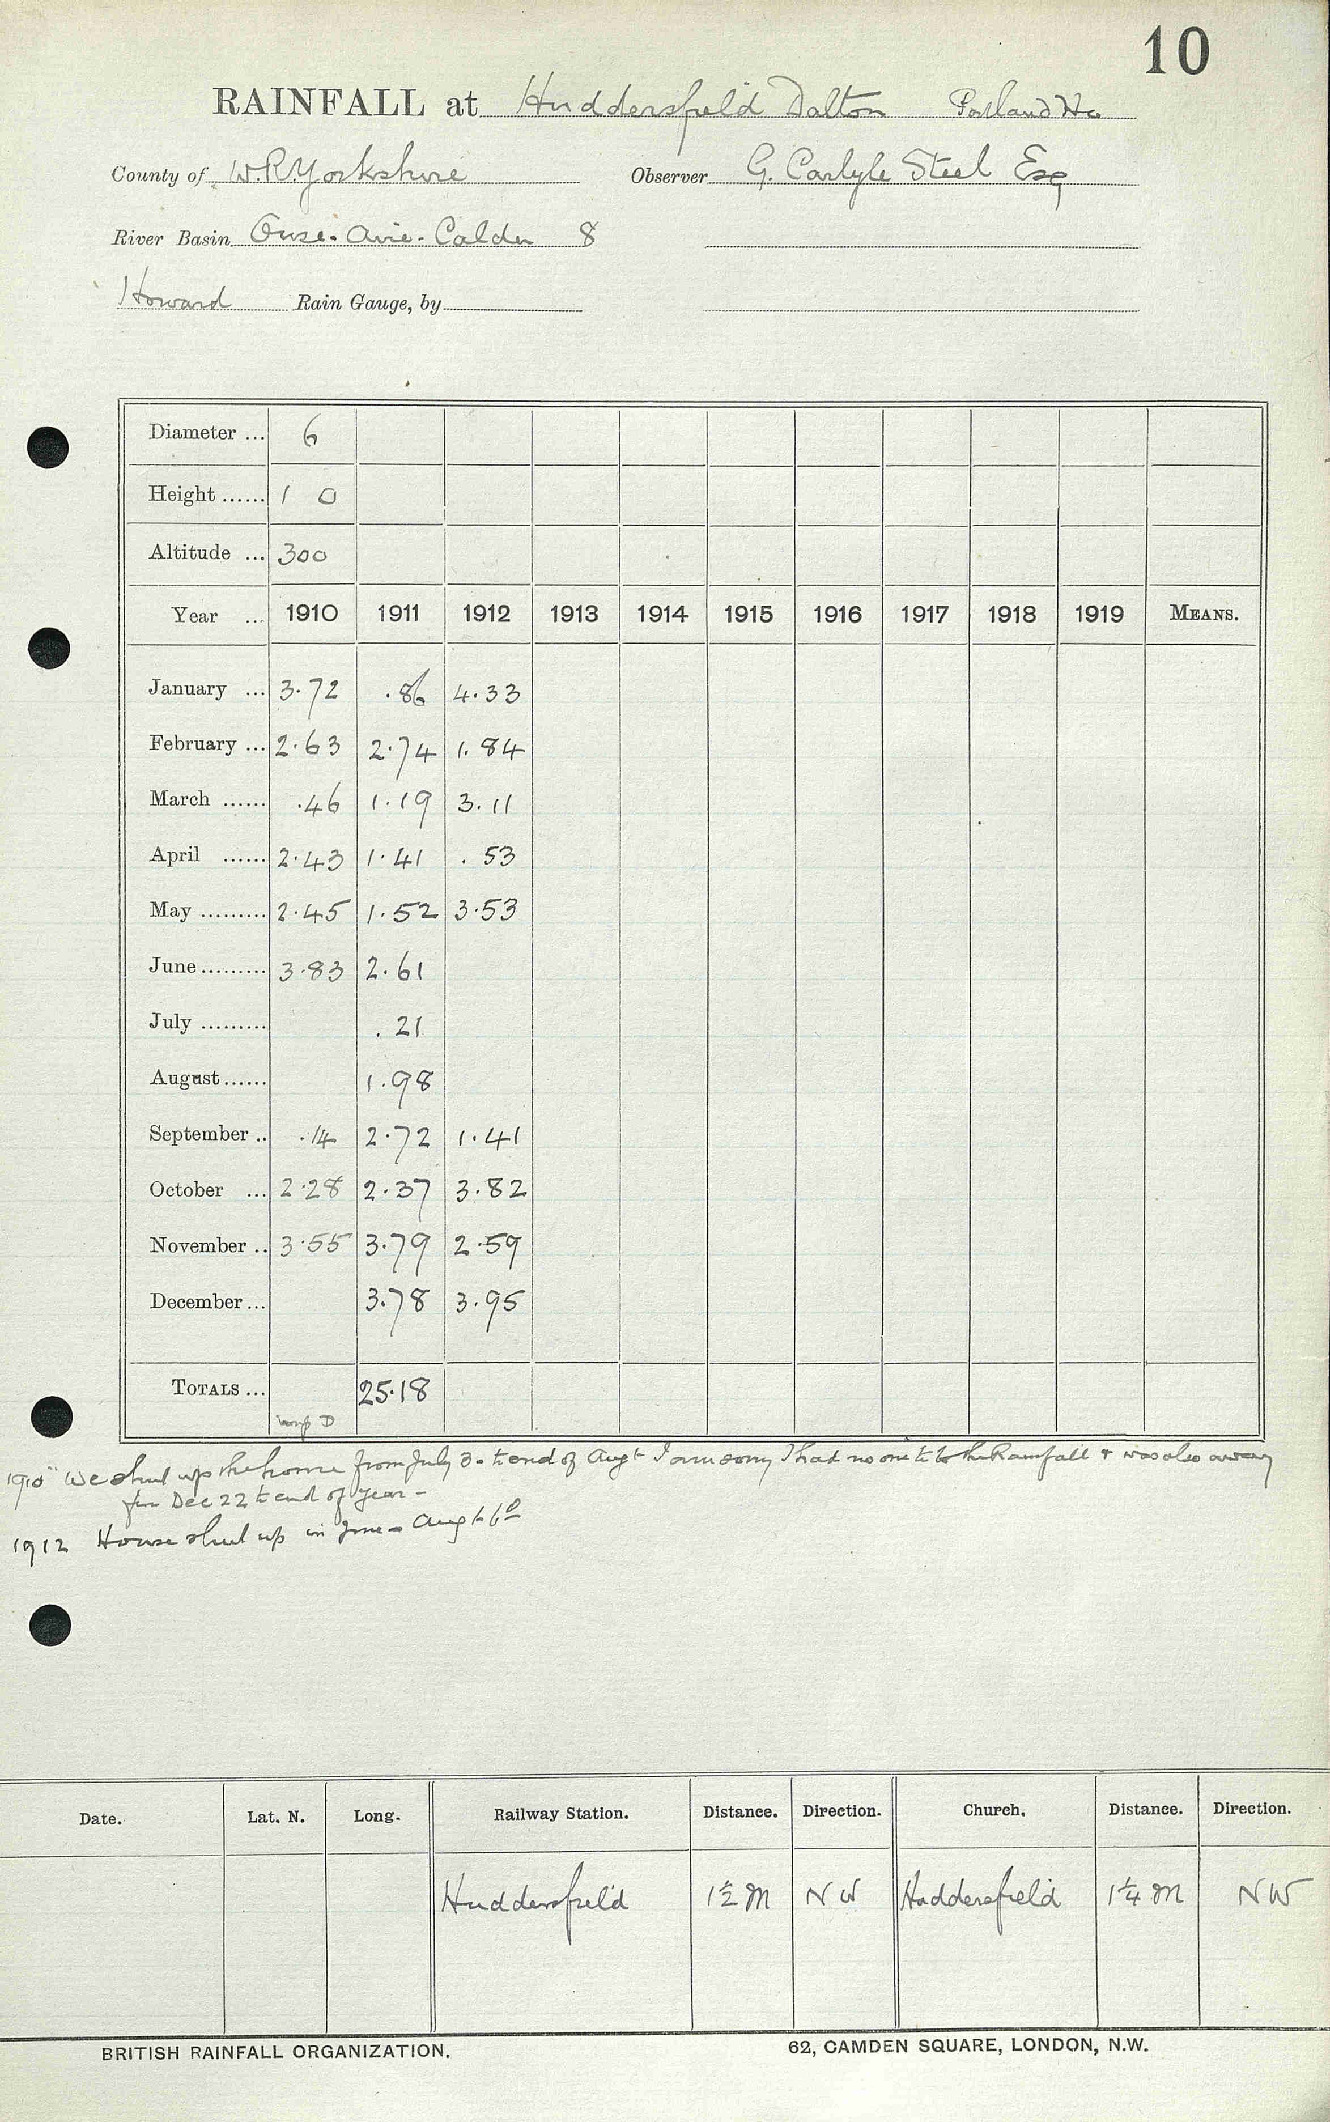 10
RAINFALL at Huddersfield Dalton Portland Ho
County of W.R. Yorkshire Observer G. Carlyle Steel Esq
River Basin Ouse. Aire. Calder 8
Howard Rain Gauge, by
Diameter ... 6
Height ...... 1 0
Altitude ... 300
Year ... 1910 1911 1912 1913 1914 1915 1916 1917 1918 1919 MEANS.
January ... 3.72 .86 4.33
February ... 2.63 2.74 1.84
March ...... .46 1.19 3.11
April ...... 2.43 1.41 .53
May ......... 2.45 1.52 3.53
June ......... 3.83 2.61
July ......... .21
August ...... 1.98
September .. .14 2.72 1.41
October ... 2.28 2.37 3.82
November .. 3.55 3.79 2.59
December ... 3.78 3.95
TOTALS ... 25.18
D
1910 "We shut up the house from July 3. to end of Augt I am sorry I had no one to the Rainfall & was also away
for Dec 22 to end of year -
1912 House shut up in June - Aug
Date. Lat. N. Long. Railway Station. Distance. Direction. Church. Distance. Direction.
Huddersfield 1½ M N W Huddersfield 1¼ M NW
BRITISH RAINFALL ORGANIZATION. 62, CAMDEN SQUARE, LONDON, N.W.